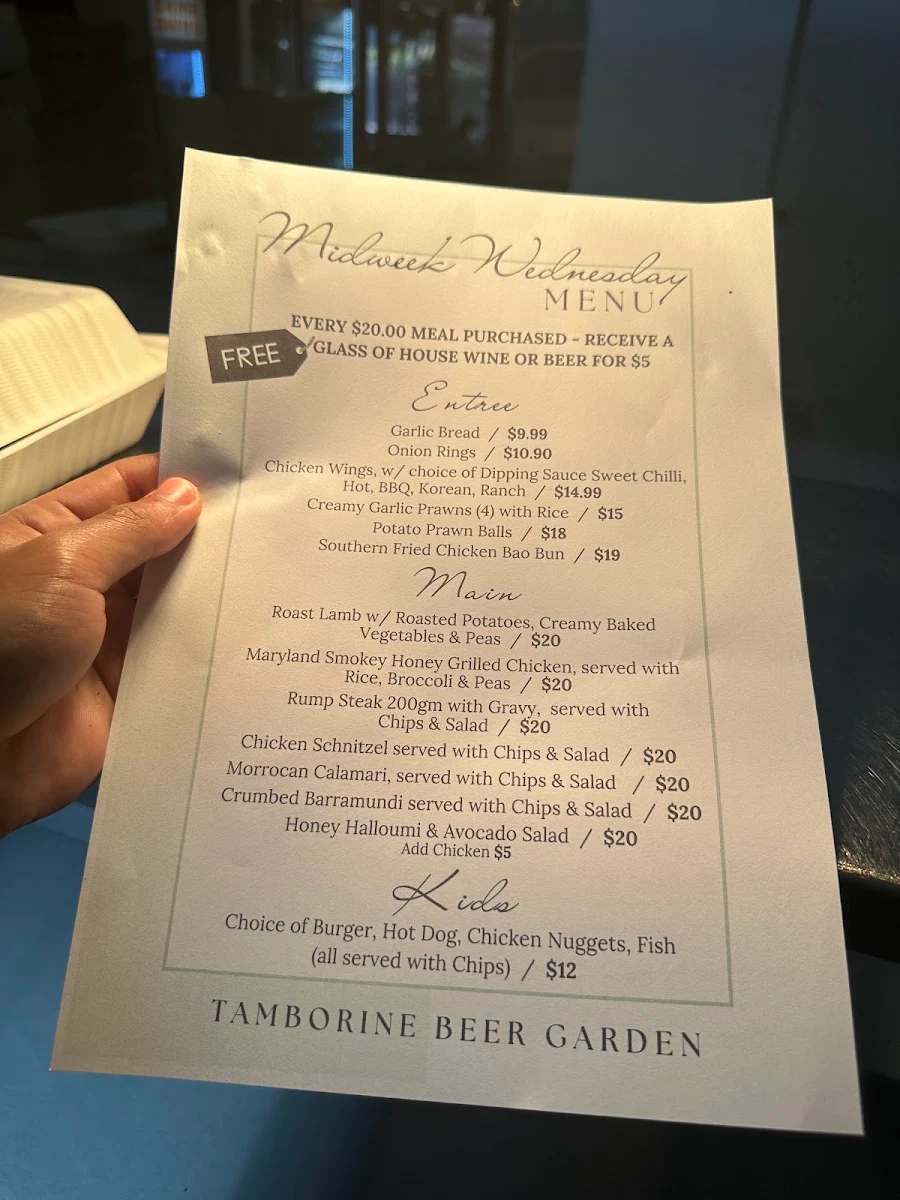 Midweek Wednesday
MENU
EVERY $20.00 MEAL PURCHASED - RECEIVE A
FREE
GLASS OF HOUSE WINE OR BEER FOR $5
Entree
Garlic Bread / $9.99
Onion Rings / $10.90
Chicken Wings, w/ choice of Dipping Sauce Sweet Chilli,
Hot, BBQ, Korean, Ranch / $14.99
Creamy Garlic Prawns (4) with Rice / $15
Potato Prawn Balls / $18
Southern Fried Chicken Bao Bun / $19
Main
Roast Lamb w/ Roasted Potatoes, Creamy Baked
Vegetables & Peas / $20
Maryland Smokey Honey Grilled Chicken, served with
Rice, Broccoli & Peas / $20
Rump Steak 200gm with Gravy, served with
Chips & Salad / $20
Chicken Schnitzel served with Chips & Salad / $20
Morrocan Calamari, served with Chips & Salad / $20
Crumbed Barramundi served with Chips & Salad / $20
Honey Halloumi & Avocado Salad / $20
Add Chicken $5
Kids
Choice of Burger, Hot Dog, Chicken Nuggets, Fish
(all served with Chips) / $12
TAMBORINE BEER GARDEN